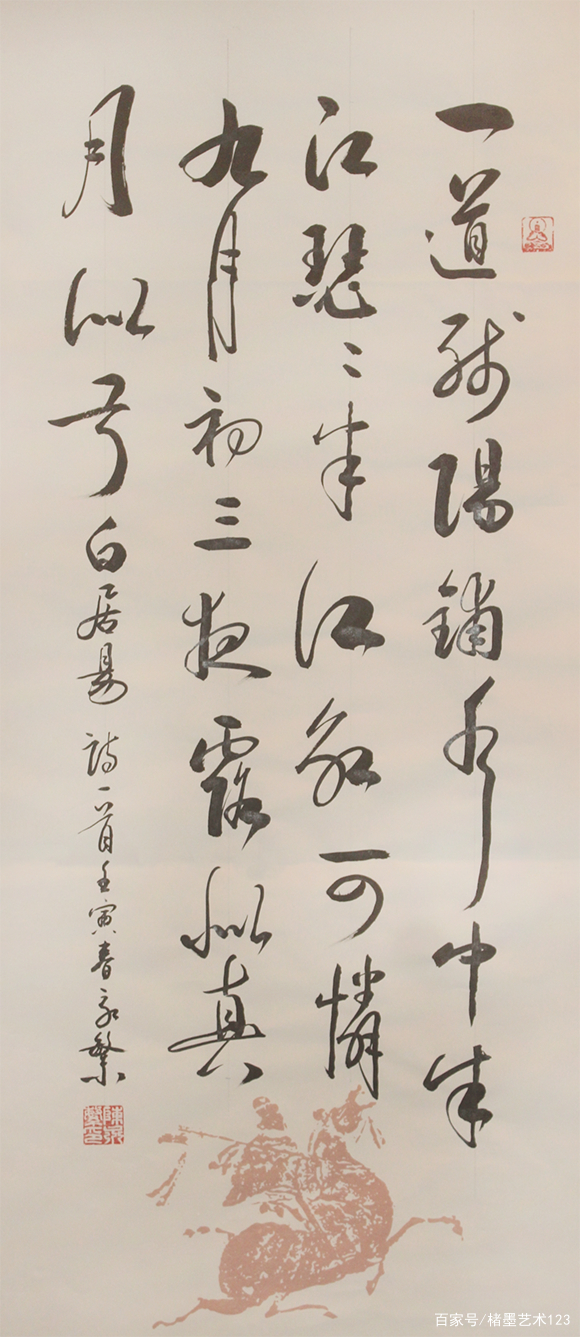 一道残陽鋪水中半
江瑟〻半江红可憐
九月初三夜露似真
月似弓 白居易詩一首壬寅春永繁
百家号/楮墨艺术123